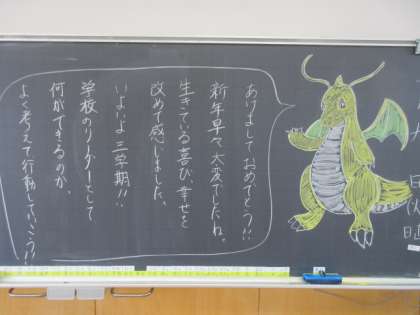 あけましておめでとう!!
新年早々、大変でしたね。
生きている喜び、幸せを
改めて感じました。
いよいよ三学期!!
学校のリーダーとして
何ができるのか、
よく考えて行動していこう!!
月
日